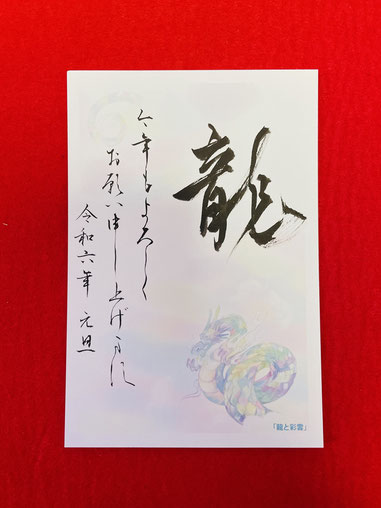 龍
今年もよろしく
お願い申し上げます
令和六年 元旦
「龍と彩雲」